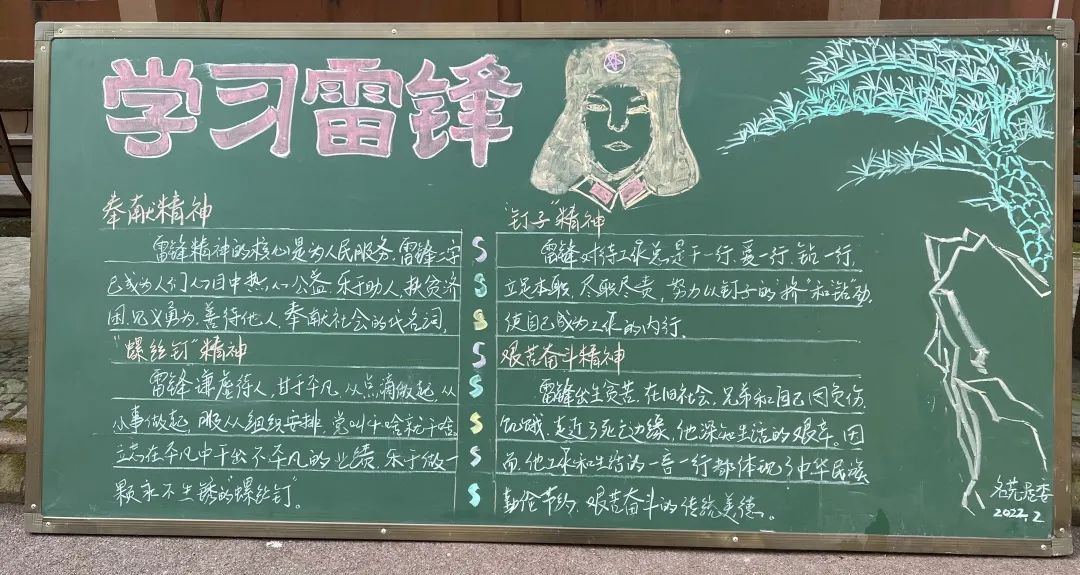 学习雷锋
奉献精神
雷锋精神的核心是为人民服务,雷锋二字
已成为人们心目中热心公益、乐于助人,扶贫济
困、见义勇为、善待他人、奉献社会的代名词,
"螺丝钉"精神
雷锋谦虚待人,甘于平凡,从点滴做起,从
小事做起,服从组织安排,党叫干啥就干啥,
立志在平凡中干出不平凡的业绩,乐于做一
颗永不生锈的"螺丝钉"。
"钉子"精神
雷锋对待工作总是干一行、爱一行、钻一行,
立足本职、尽职尽责,努力以钉子的"挤"和"钻"劲,
使自己成为工作的内行,
艰苦奋斗精神
雷锋出生贫苦,在旧社会,兄弟和自己因负伤、
饥饿,走近了死亡边缘,他深知生活的艰辛。因
而,他工作和生活的一言一行都体现了中华民族
勤俭节约,艰苦奋斗的传统美德。
名苑居委
2022.2